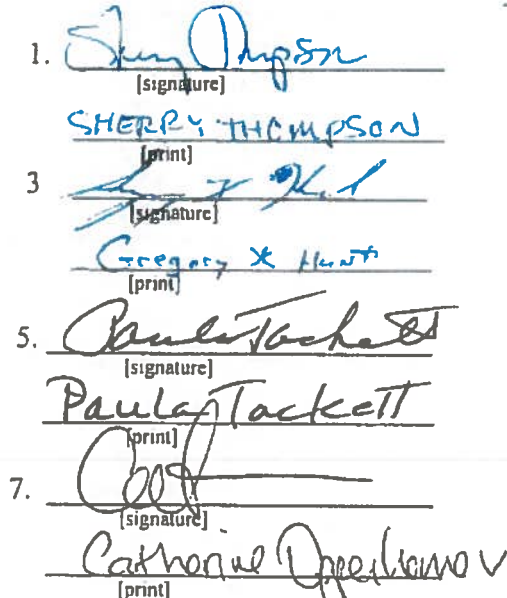 1. Sherry Thompson
[signature]
SHERRY THOMPSON
[print]
3
[signature]
Gregory X Hunt
[print]
5. Paula Tackett
[signature]
Paula Tackett
[print]
7.
[signature]
Catherine
[print]